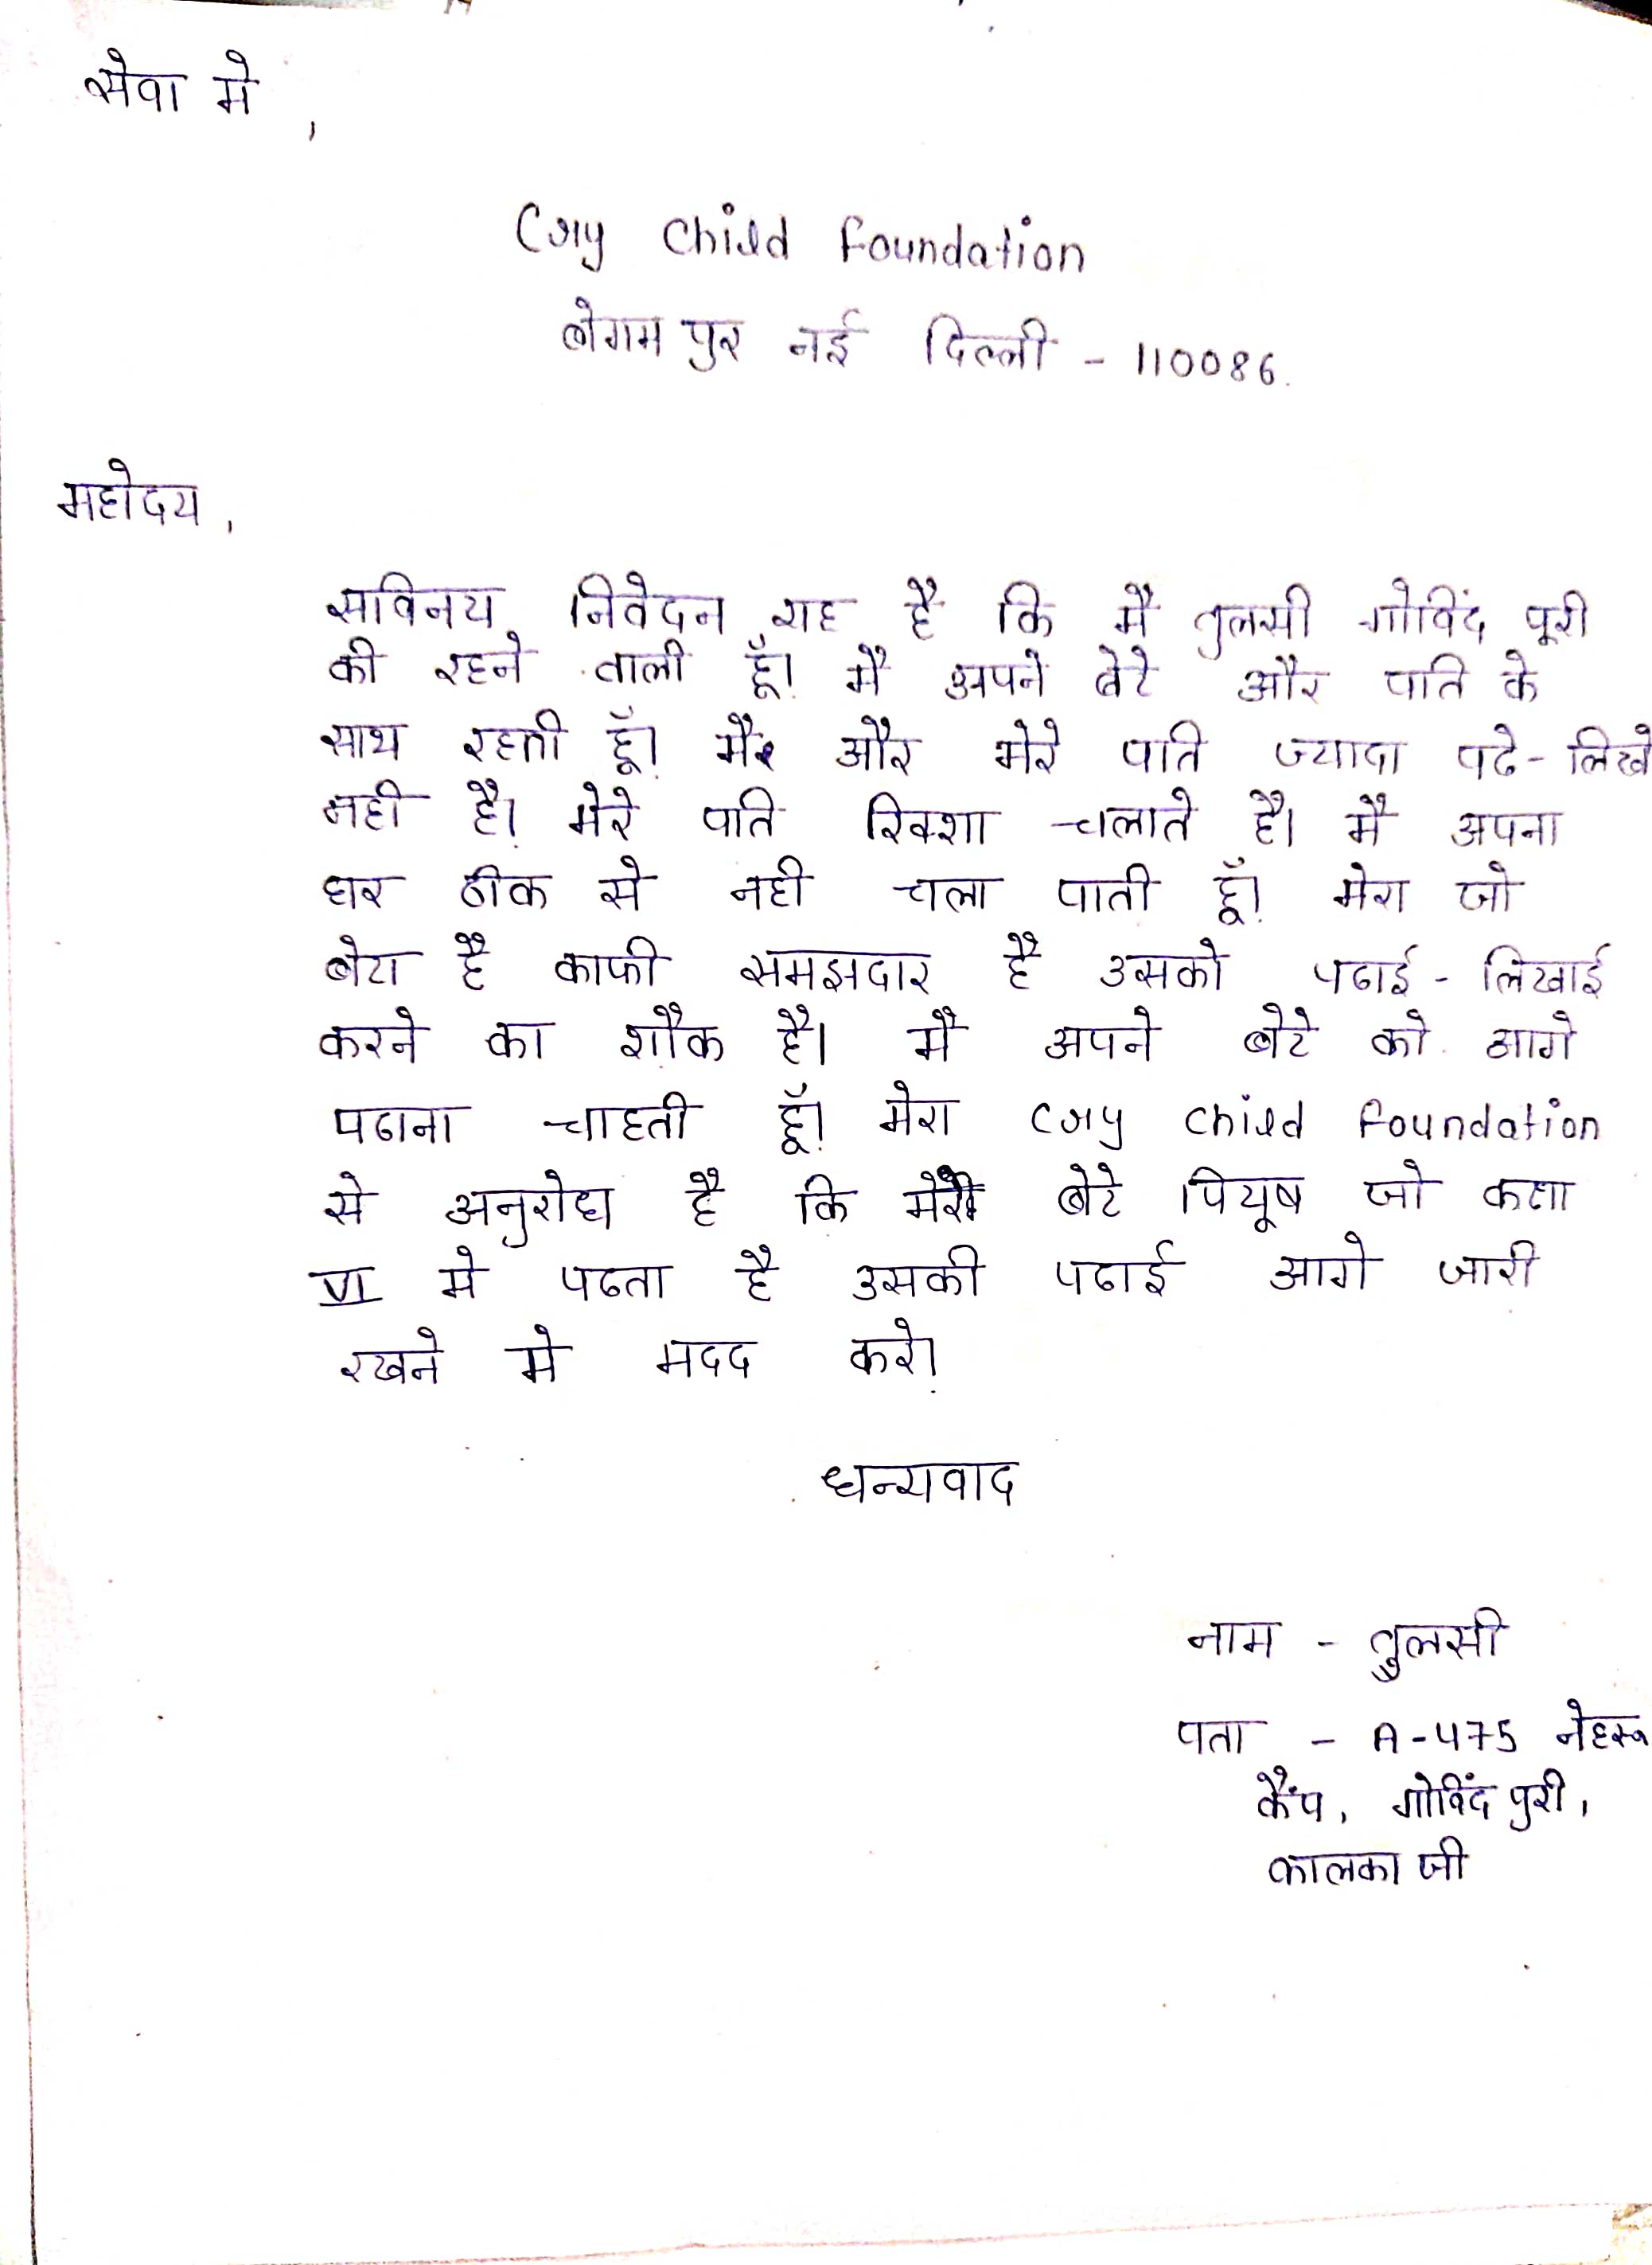 सेवा मे,
Cry Child Foundation
बेगम पुर नई दिल्ली - 110086.
महोदय,
सविनय निवेदन यह है कि मै तुलसी गोविंद पूरी
की रहने वाली हूँ। मै अपने बेटे और पति के
साथ रहती हूँ। मैं और मेरे पति ज्यादा पढे-लिखे
नही है। मेरे पति रिक्शा चलाते है। मै अपना
घर ठीक से नही चला पाती हूँ। मेरा जो
बेटा है काफी समझदार है उसको पढाई - लिखाई
करने का शौक है। मै अपने बेटे को आगे
पढाना चाहती हूँ। मेरा Cry Child Foundation
से अनुरोध है कि मेरे बेटे पियूष जो कक्षा
VI मे पढता है उसकी पढाई आगे जारी
रखने मे मदद करे।
धन्यवाद
नाम - तुलसी
पता - A-475 नेहरू
कैंप, गोविंद पुरी,
कालका जी